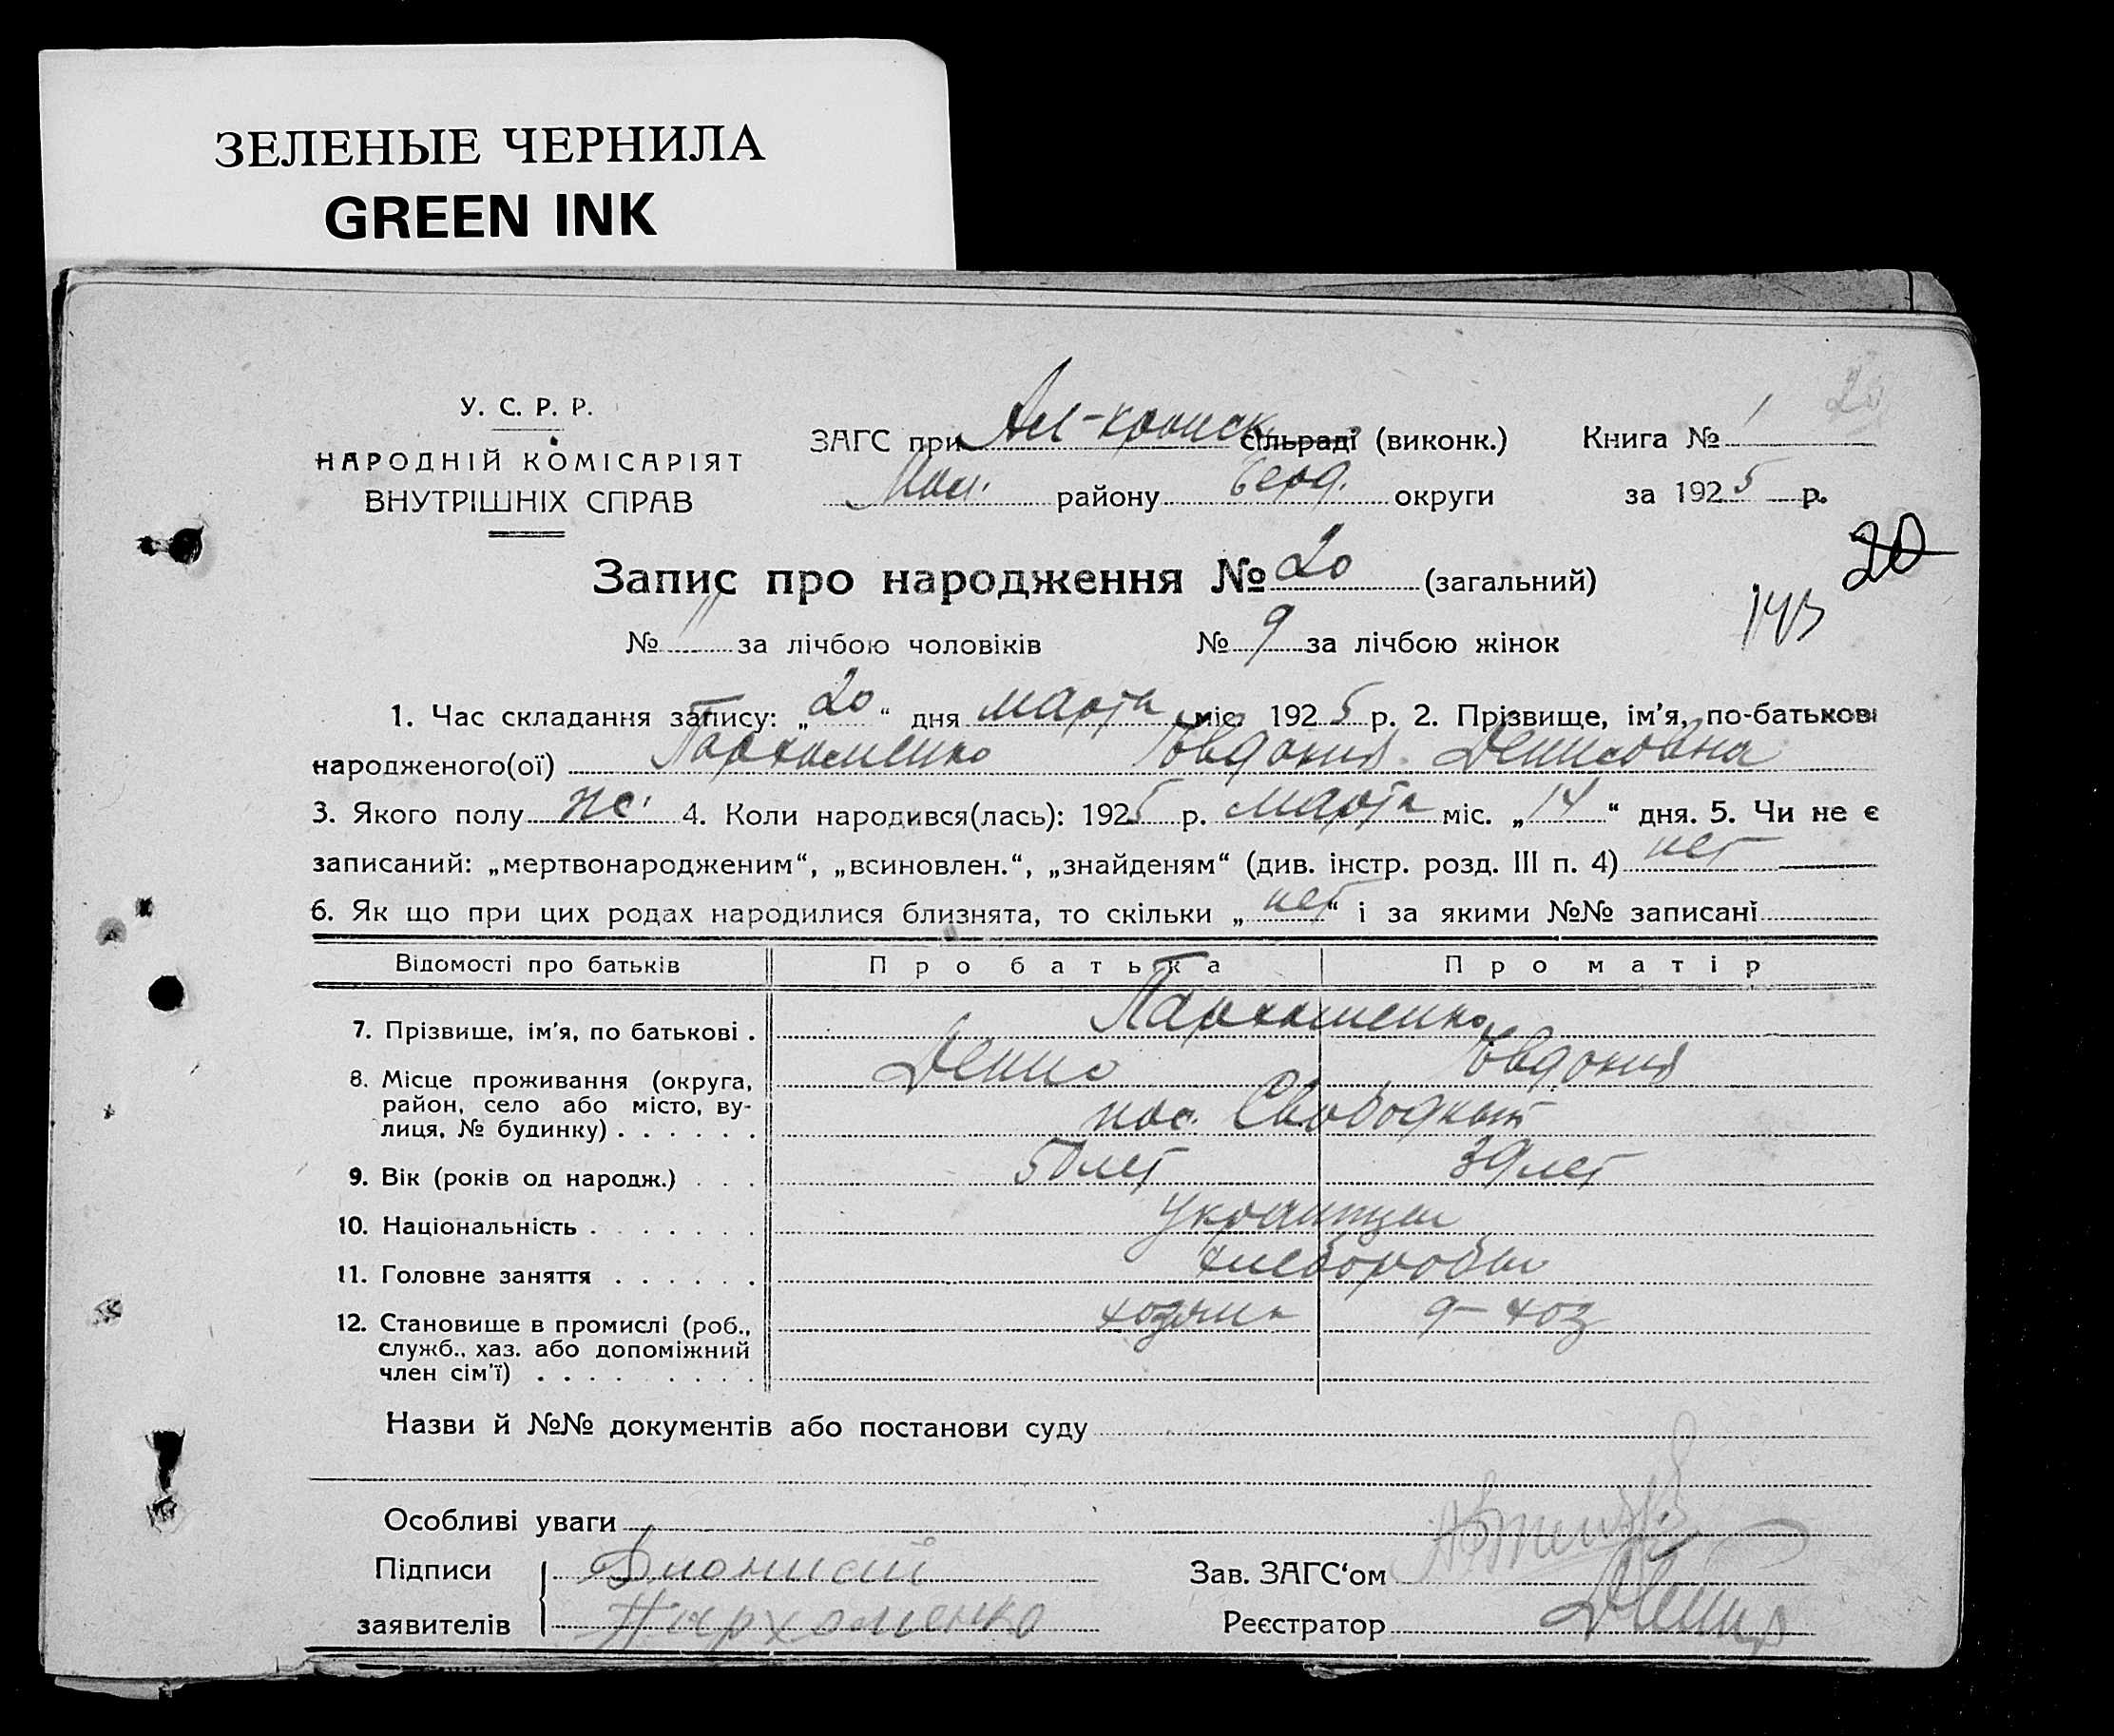 ЗЕЛЕНЫЕ ЧЕРНИЛА
GREEN INK
20
У. С. Р. Р.
НАРОДНІЙ КОМІСАРІЯТ
ВНУТРІШНІХ СПРАВ
ЗАГС при сільраді (виконк.) Книга № 1
району Берд. округи за 1925 р.
20
Запис про народження № 20 (загальний)
143
№ 11 за лічбою чоловіків № 9 за лічбою жінок
1. Час складання запису: „20“ дня марта міс. 1925 р. 2. Прізвище, ім'я, по-батькові
народженого(ої) Пархоменко Евдокия Денисовна
3. Якого полу ж. 4. Коли народився(лась): 1925 р. марта міс. „14“ дня. 5. Чи не є
записаний: „мертвонародженим“, „всиновлен.“, „знайденям“ (див. інстр. розд. III п. 4) нет
6. Як що при цих родах народилися близнята, то скільки „нет“ і за якими №№ записані
Відомості про батьків Про батька Про матір
7. Прізвище, ім'я, по батькові . Пархоменко
Денис Евдокия
8. Місце проживання (округа,
район, село або місто, ву-
лиця, № будинку) . . . . . . пос. Свободный
9. Вік (років од народж.) . . . 50 лет 39 лет
10. Національність . . . . . . . украинцы
11. Головне заняття . . . . . . хлеборобы
12. Становище в промислі (роб., хозяин д-хоз
служб., хаз. або допоміжний
член сім'ї) . . . . . . . . .
Назви й №№ документів або постанови суду
Особливі уваги
Підписи Дионисий Зав. ЗАГС‘ом
заявителів Пархоменко Реєстратор